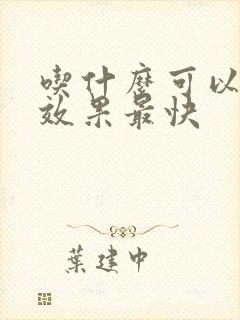 喫什麼可以
效果最快
葉建中